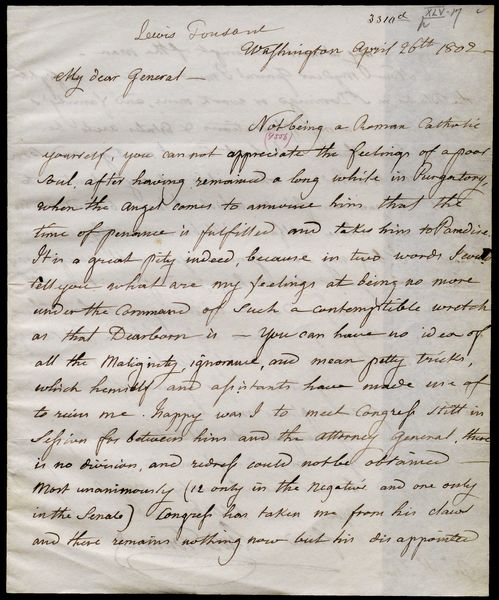 3310d XLV-17
Lewis Tousard
Washington April 26th 1802 -
My dear General -
Not being a Roman Catholic
(4556)
yourself, you can not appreciate the feelings of a poor
Soul, after having remained a long while in Purgatory,
when the angel comes to announce him that the
time of penance is fulfilled and takes him to Paradise
It is a great pity indeed, because in two words I would
tell you what are my feelings at being no more
under the Command of Such a contemptible wretch
as that Dearborn is - You can have no idea of
all the Malignity, ignorance, and mean petty tricks,
which himself and assistants have made use of
to ruin me. Happy was I to meet Congress still in
Session for between him and the attorney General, there
is no division, and redress could not be obtained -
Most unanimously (12 only in the Negative and one only
in the Senate) Congress has taken me from his claws
and there remains nothing now but his disappointed